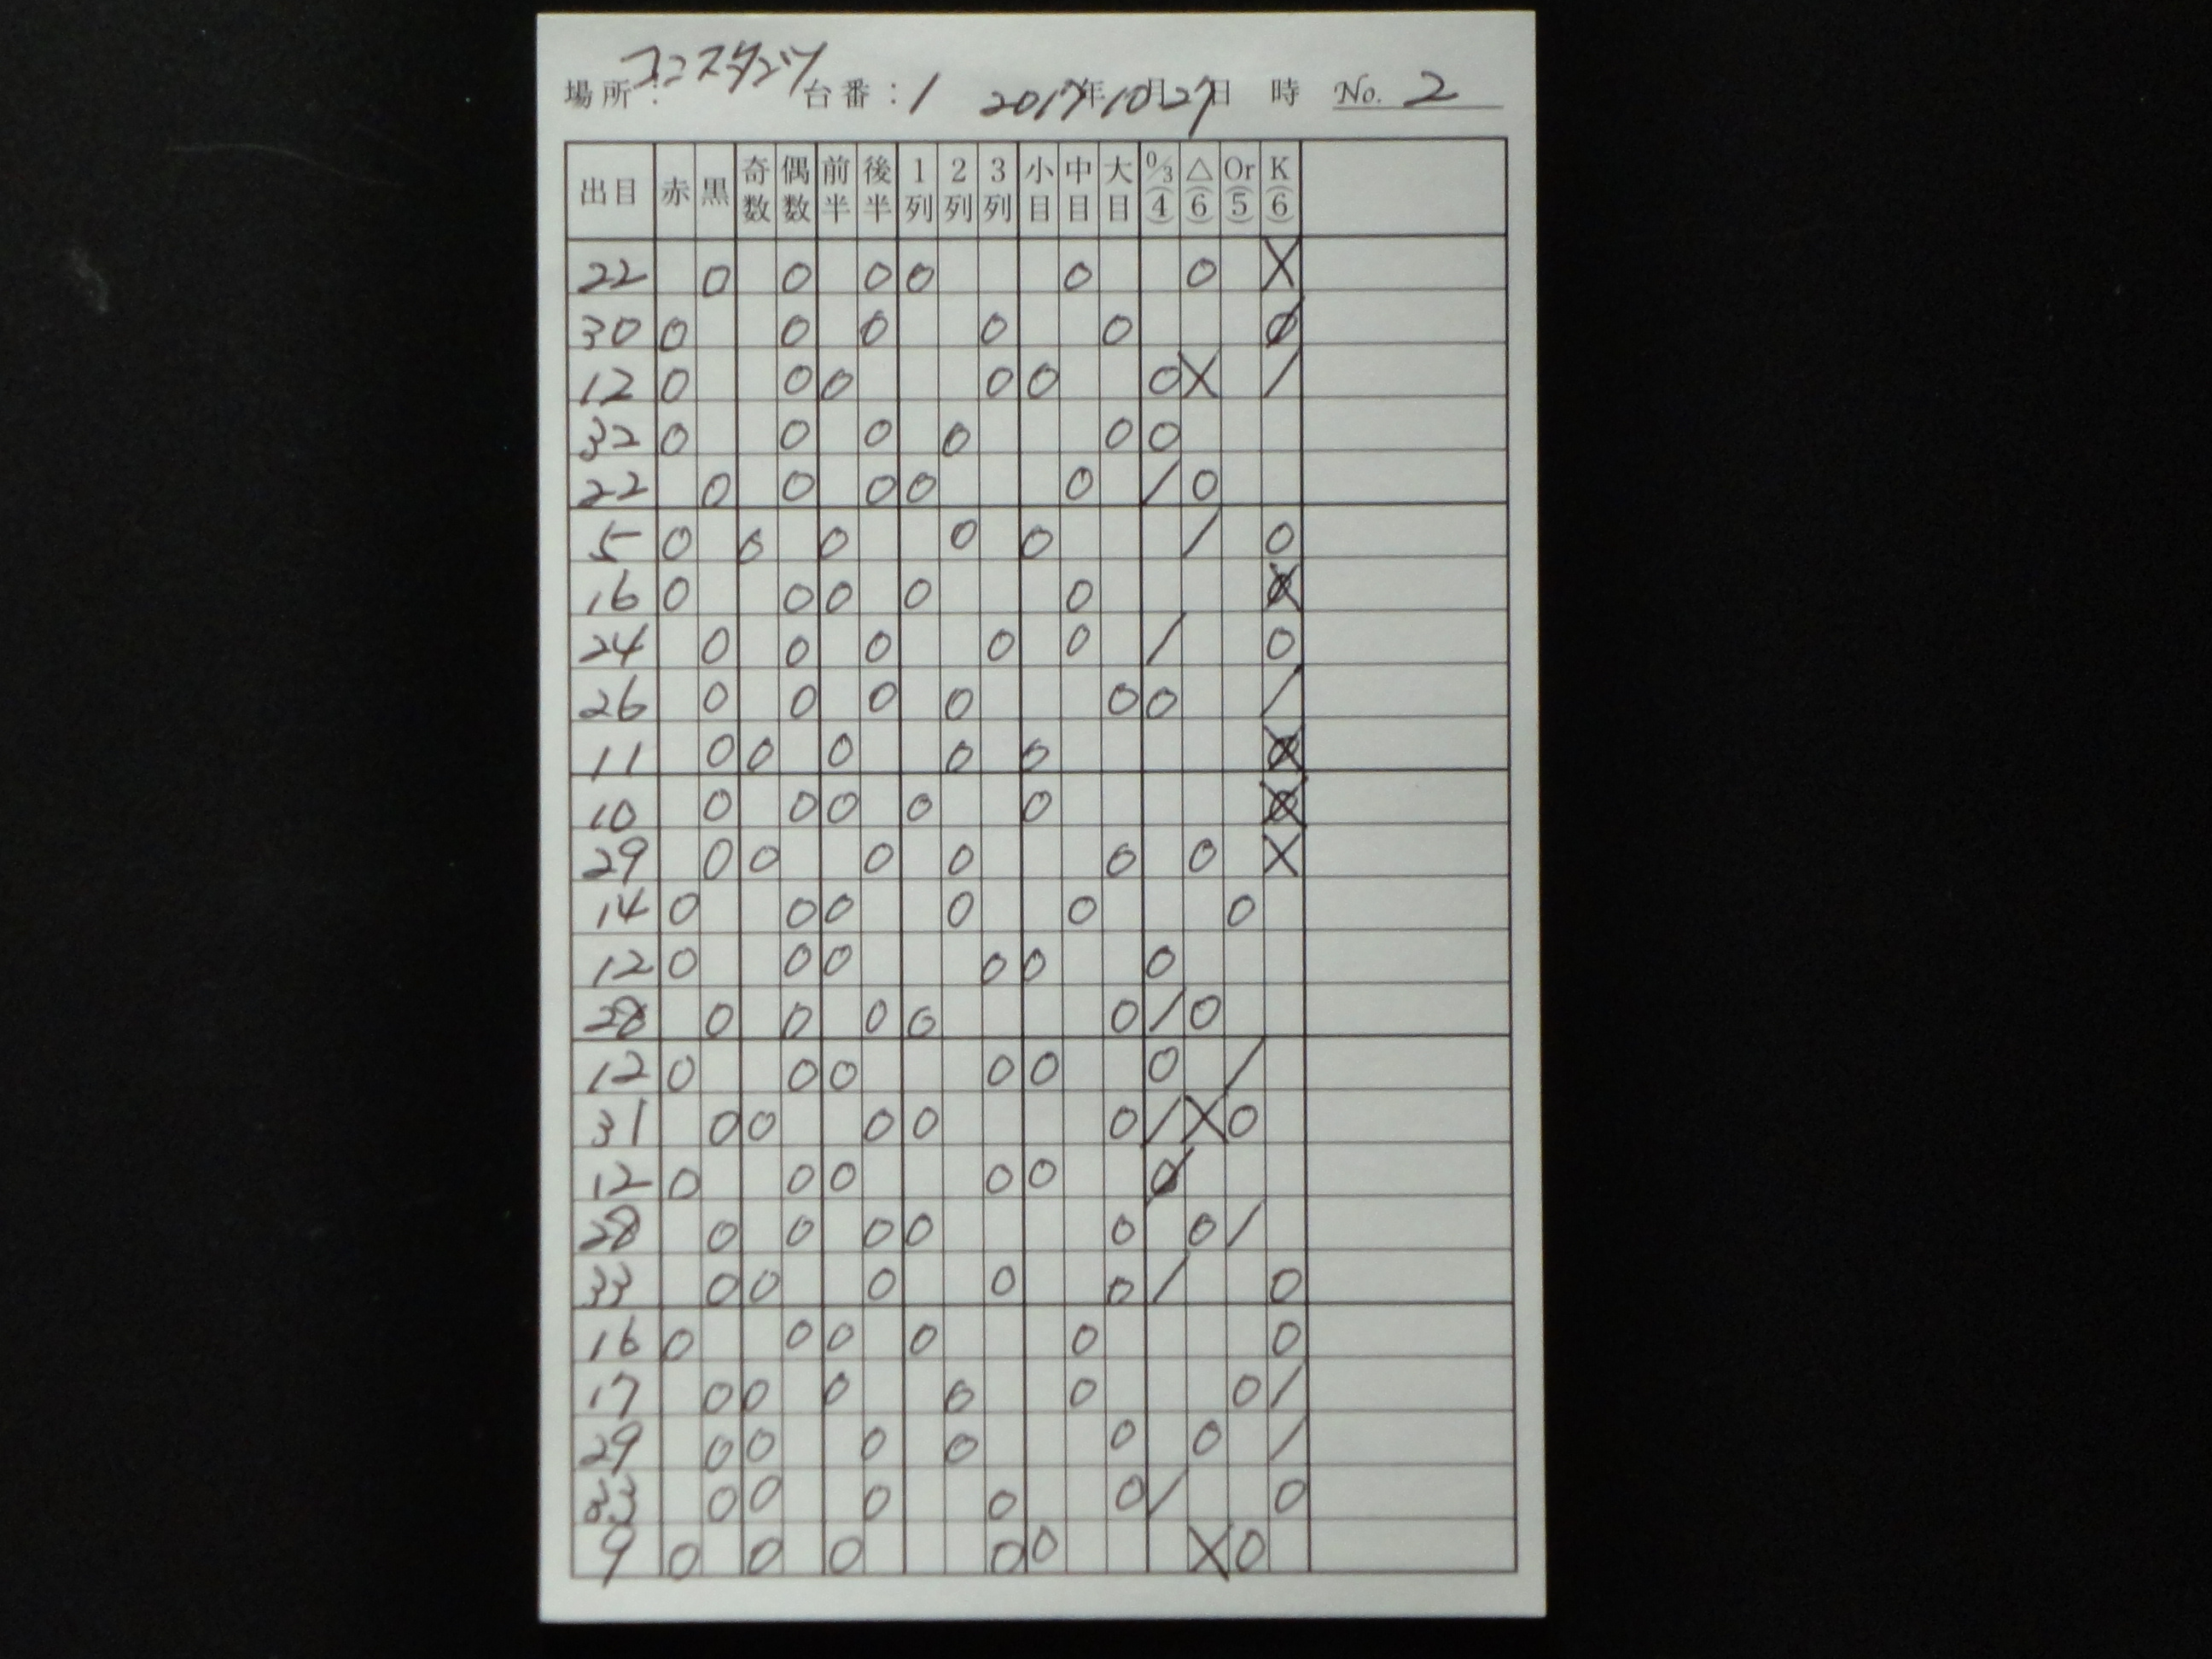 場所： 台番：1 2017年10月27日 時 No. 2
出目 赤 黒 奇数 偶数 前半 後半 1列 2列 3列 小目 中目 大目 0/3(4) △(6) Or(5) K(6)
22 0 0 0 0 0 0 X
30 0 0 0 0 0 0
12 0 0 0 0 0 0 X /
32 0 0 0 0 0 0
22 0 0 0 0 0 / 0
5 0 0 0 0 0 / 0
16 0 0 0 0 0 0
24 0 0 0 0 0 / 0
26 0 0 0 0 0 0 /
11 0 0 0 0 0 0
10 0 0 0 0 0 0
29 0 0 0 0 0 0 X
14 0 0 0 0 0 0
12 0 0 0 0 0 0
28 0 0 0 0 0 / 0
12 0 0 0 0 0 0 /
31 0 0 0 0 0 / X 0
12 0 0 0 0 0 0
28 0 0 0 0 0 0 /
33 0 0 0 0 0 / 0
16 0 0 0 0 0 0
17 0 0 0 0 0 0 /
29 0 0 0 0 0 0 /
33 0 0 0 0 0 / 0
9 0 0 0 0 0 X 0